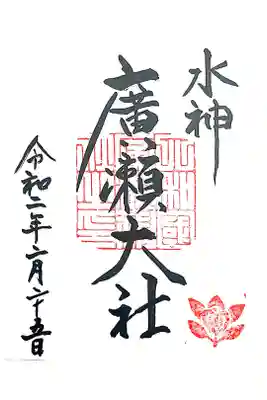 水神
廣瀬大社
令和二年 月二十五日